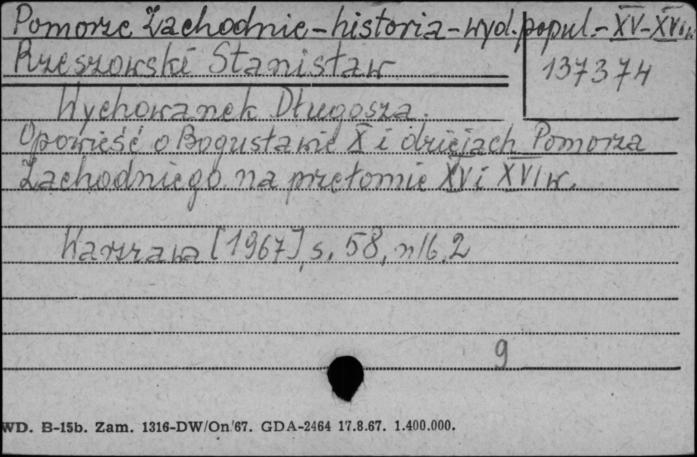 Pomorze Zachodnie - historia - wyd. popul. - XV-XVI w.
Rzeszowski Stanisław
137374
Wychowanek Długosza.
Opowieść o Bogusławie X i dziejach Pomorza
Zachodniego na przełomie XV i XVI w.
Warszawa [1967], s. 58, nlb. 2
9
WD. B-15b. Zam. 1316-DW/On/67. GDA-2464 17.8.67. 1.400.000.